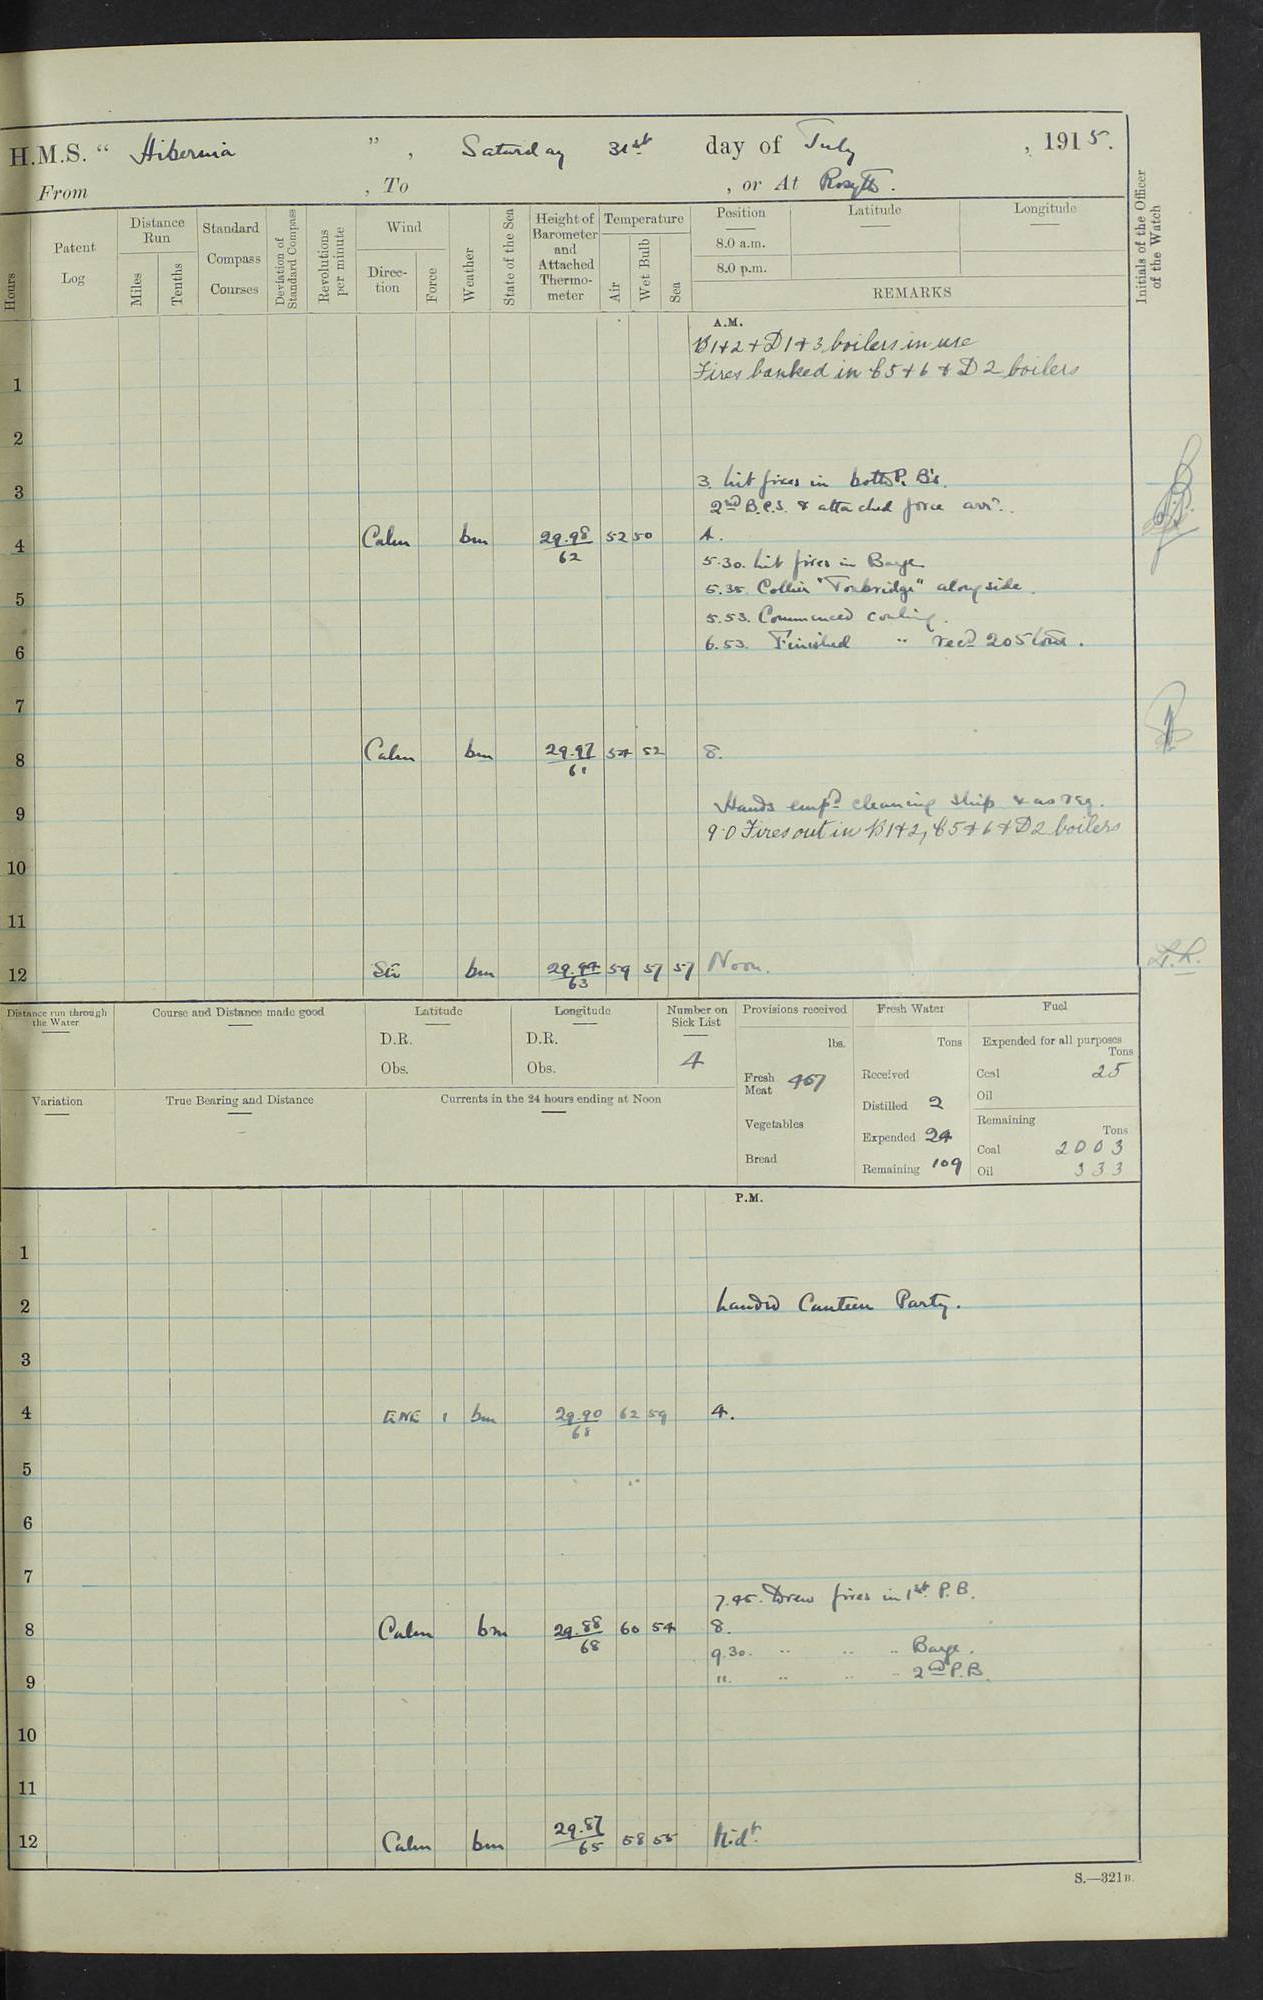 H.M.S. " Hibernia " , Saturday 31st day of July , 1915.
From , To , or At Rosyth.
Hours
Patent Log
Distance Run
Miles
Tenths
Standard Compass Courses
Deviation of Standard Compass
Revolutions per minute
Wind
Direction
Force
Weather
State of the Sea
Height of Barometer and Attached Thermometer
Temperature
Air
Wet Bulb
Sea
Position
Latitude
Longitude
8.0 a.m.
8.0 p.m.
REMARKS
Initials of the Officer of the Watch
A.M.
B 1+2 + D 1+3 boilers in use
1 Fires banked in B5+6 & D2 boilers
2
3 3. Lit fires in both P. B's.
2nd B.C.S. & attached force arrd.
4 Calm bm 29.98/62 52 50 4.
5.30. Lit fires in Barge
5 5.35. Collier "Tonbridge" alongside.
5.53. Commenced coaling.
6 6.53. Finished " recd 205 tons.
7
8 Calm bm 29.97/61 54 52 8.
9 Hands empd cleaning ship & as req.
9.0 Fires out in B1+2, B5+6 + D2 boilers
10
11
12 bm 29.94/63 59 57 57 Noon.
Distance run through the Water
Course and Distance made good
Latitude
D.R.
Obs.
Longitude
D.R.
Obs.
Number on Sick List
4
Provisions received
lbs.
Fresh Meat 467
Vegetables
Bread
Fresh Water
Tons
Received
Distilled 2
Expended 24
Remaining 109
Fuel
Expended for all purposes
Tons
Coal 25
Oil
Remaining
Tons
Coal 2003
Oil 333
Variation
True Bearing and Distance
Currents in the 24 hours ending at Noon
P.M.
1
2 Landed Canteen Party.
3
4 ENE 1 bm 29.90/68 62 59 4.
5
6
7
7.45. Drew fires in 1st P.B.
8 Calm bm 29.88/68 60 54 8.
9.30. " " " Barge.
9 " " " " 2nd P.B.
10
11
12 Calm bm 29.87/65 58 55 Midt.
S.—321B.